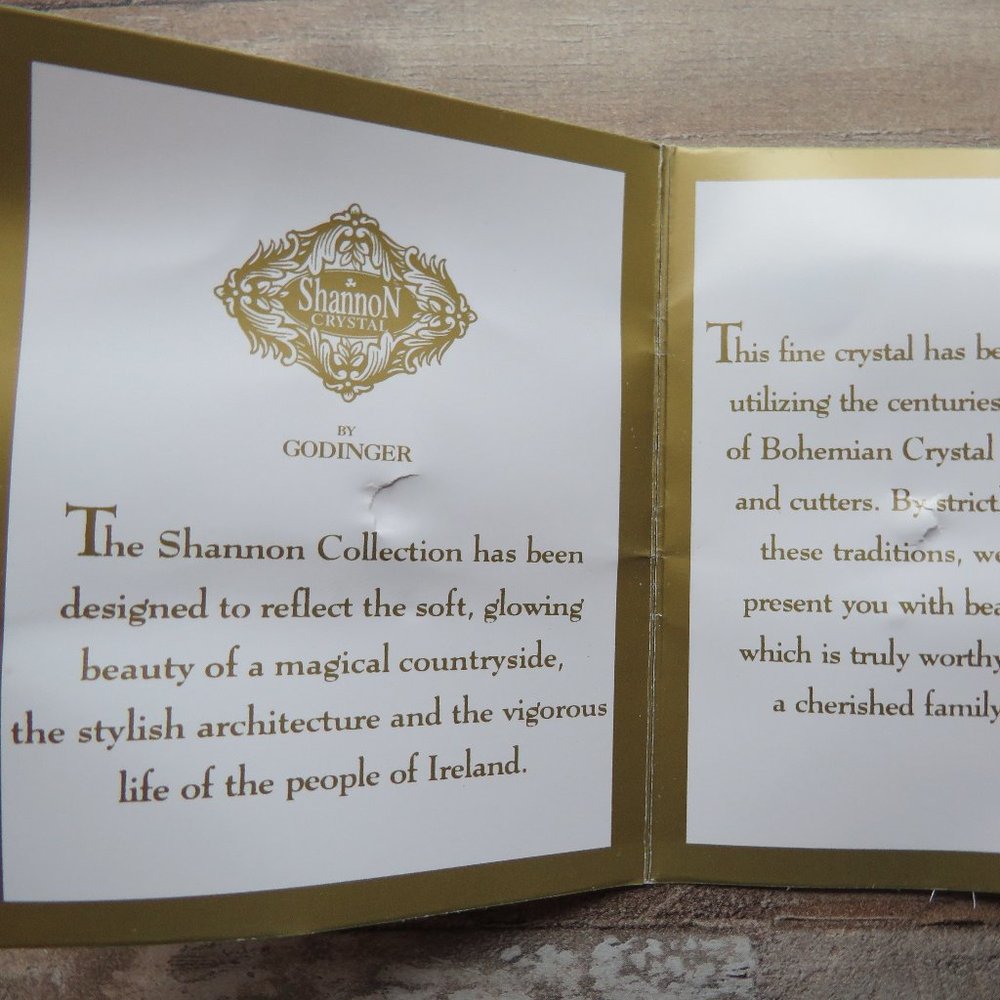 ShannoN
CRYSTAL
BY
GODINGER
The Shannon Collection has been
designed to reflect the soft, glowing
beauty of a magical countryside,
the stylish architecture and the vigorous
life of the people of Ireland.
This fine crystal has
utilizing the centuries
of Bohemian Crystal
and cutters. By
these traditions,
present you with
which is truly worthy
a cherished family